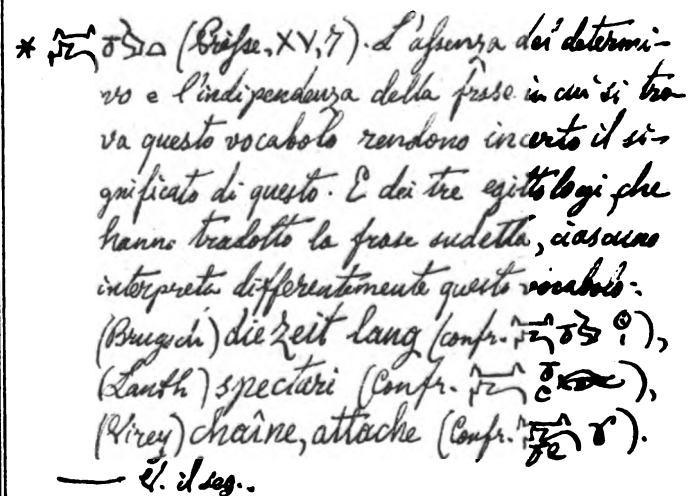 * (Brifse, XV, 7). L'afsenza dei determi-
vo e l'indipendenza della frase in cui si tro
va questo vocabolo rendono incerto il si-
gnificato di questo. E dei tre egittologi che
hanno tradotto la frase sudetta, ciascuno
interpreta differentemente questo vocabolo:
(Brugsch) die Zeit lang (confr. ),
(Lauth) spectari (Confr. ),
(Virey) chaîne, attache (Confr. ).
— V. il seg..